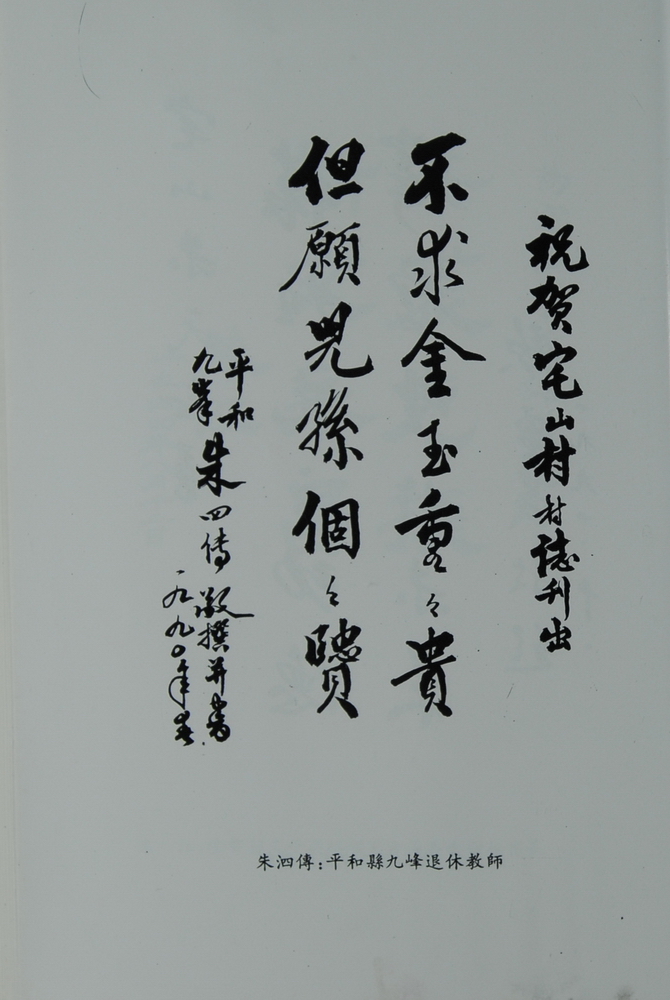 祝賀宅山村村誌刊出
不求金玉重々貴
但願兒孫個々賢
平和
九峯朱四傳敬撰并書
一九九〇年春
朱泗傳：平和縣九峰退休教師